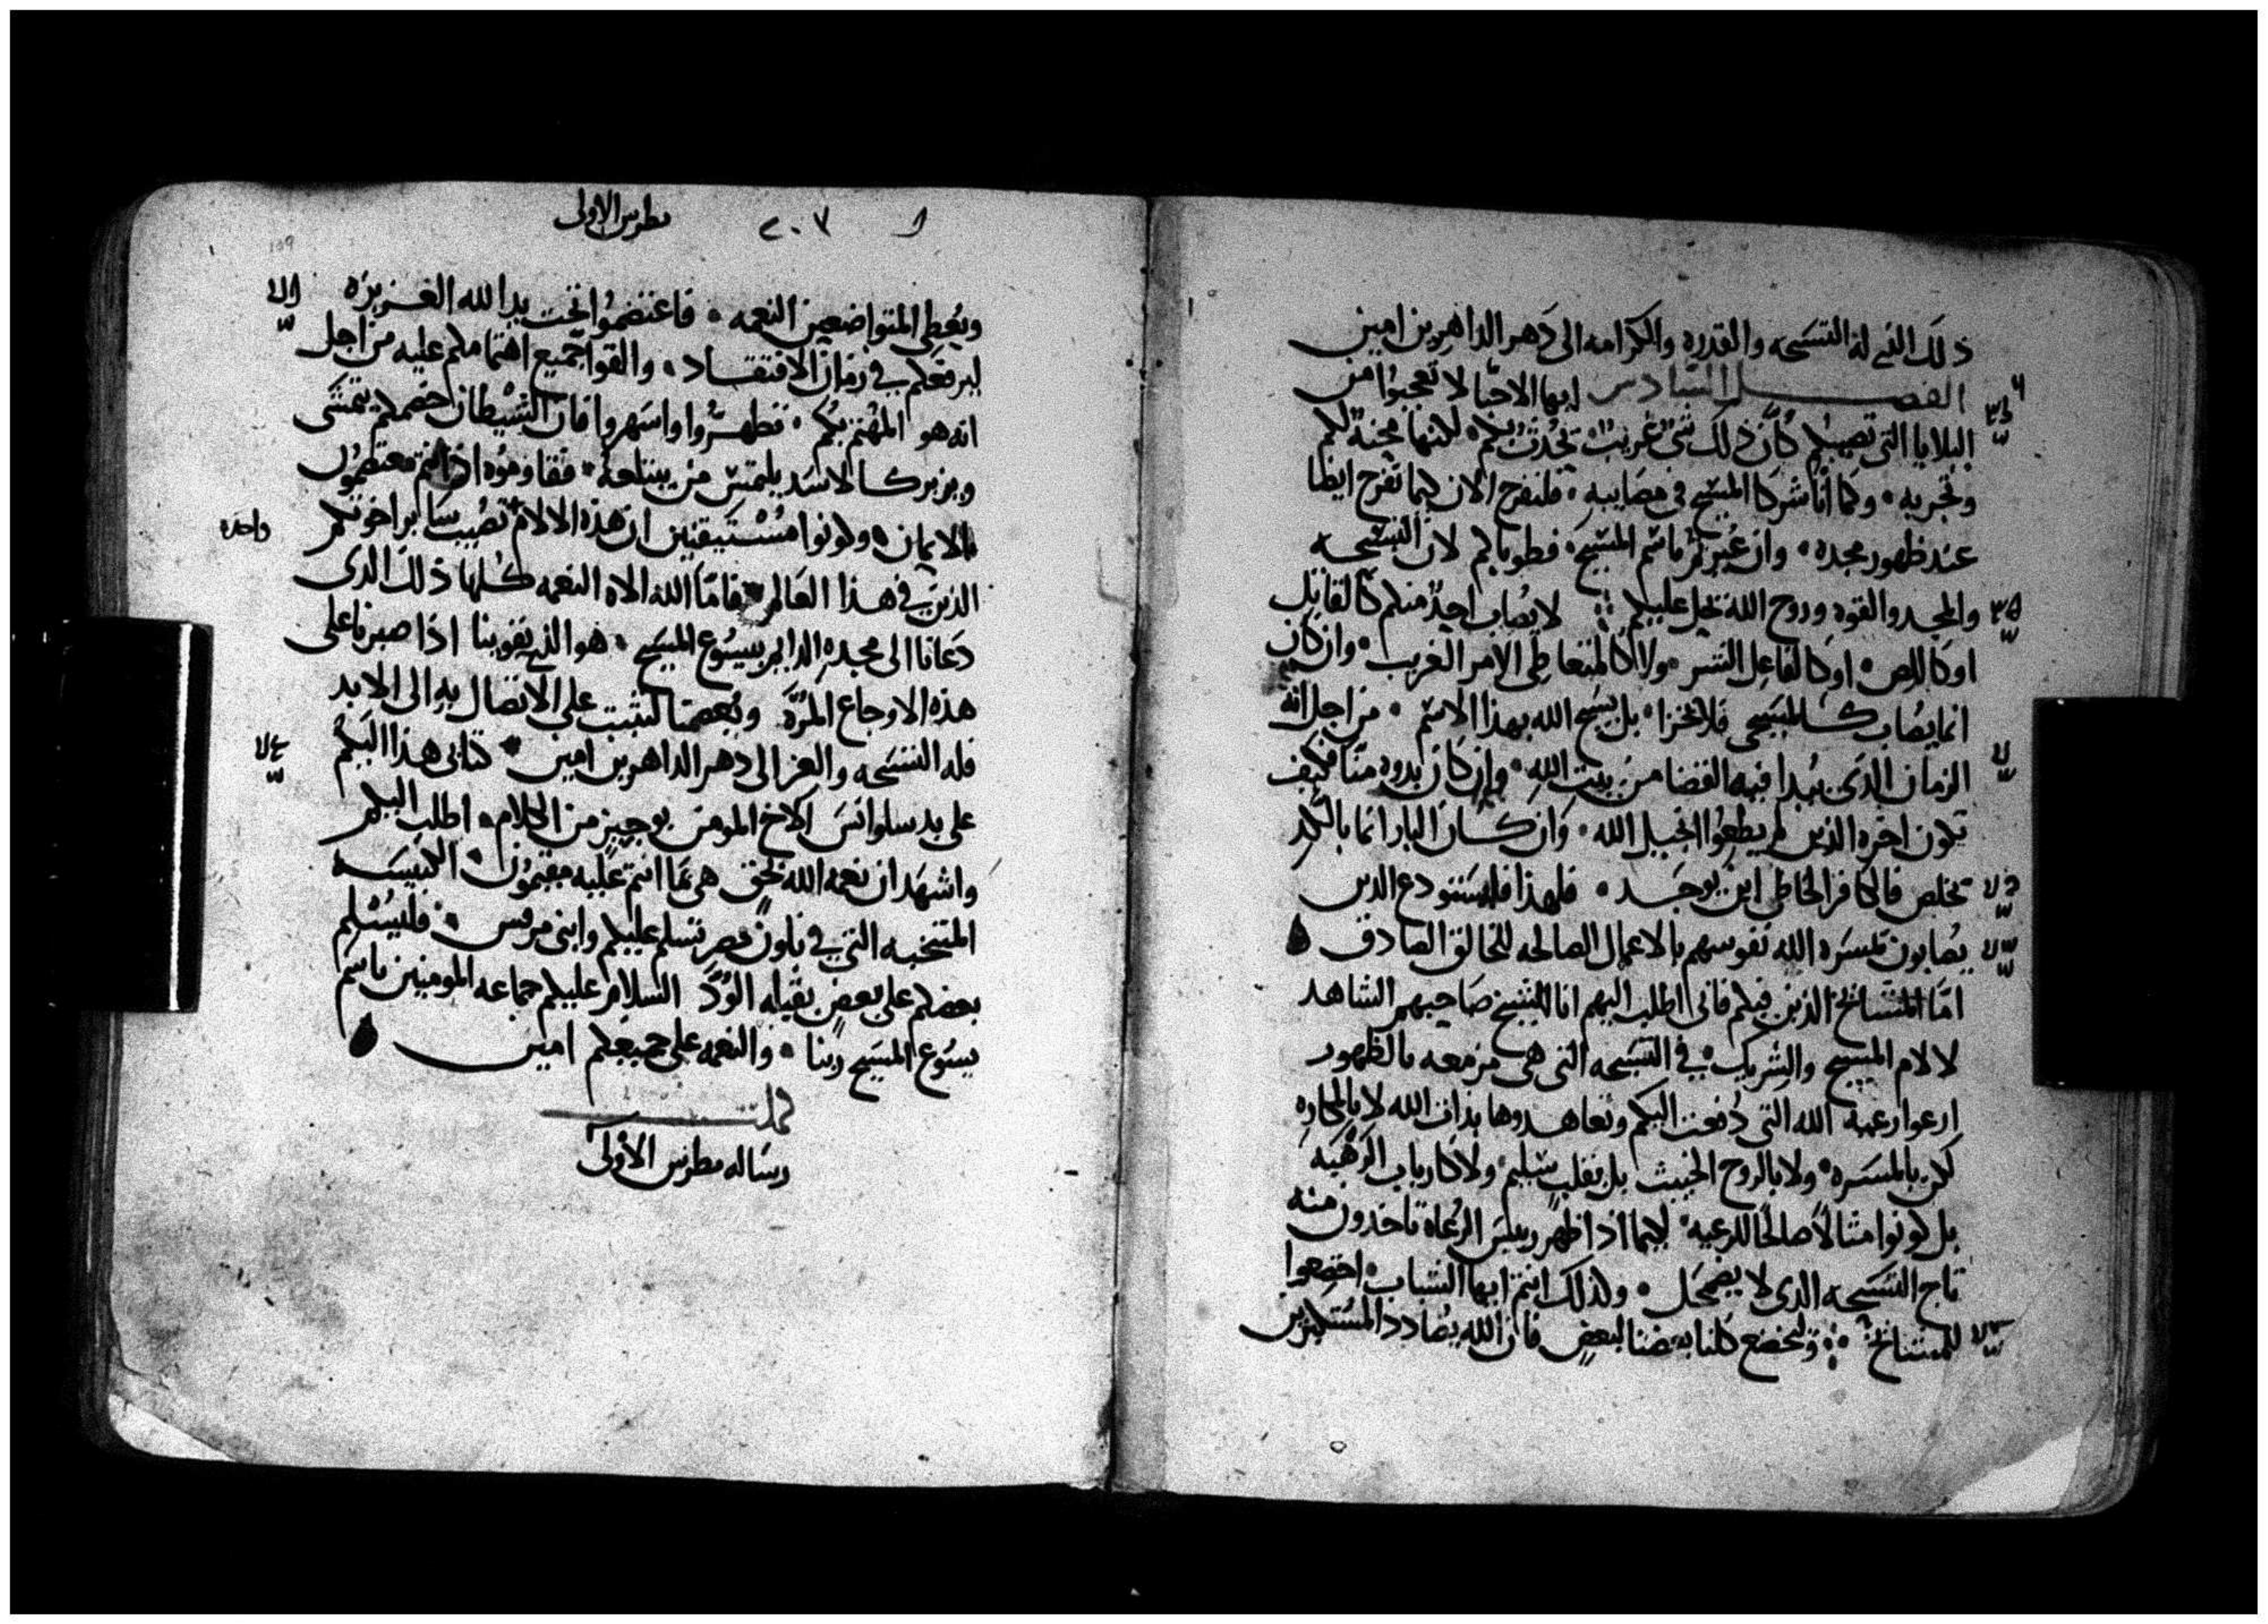 ذلك الذي له التسبحه والقدره والكرامه الى دهر الداهرين امين
الفصل السادس ايها الاحبا لا تعجبوا من
البلايا التى تصيبكم كأن ذلك شى غريب تحدث بكم لكنها محنة لكم
وتجربه وكما انا شركا المسيح فى مصايبه فلنفرح الان كيما نفرح ايظا
عند ظهور مجده وان عُيرتم باسم المسيح فطوباكم لان التسبحه
والمجد والقوه وروح الله تحل عليكم لا يُصاب احدٌ منكم كالقاتل
او كاللص او كالفاعل الشر ولا كالمتعاطى الامر الغريب وان كان
انما يصاب كالمسيحى فلا يخزا بل يسبح الله بهذا الاسم من اجل انه
الزمان الذى يبدا فيه القضا من بيت الله وان كان بدوه منا فكيف
تكون اخره الذين لم يطعوا انجيل الله وان كان البار انما بالكد
تخلص فالكافر الخاطى اين يوجد فلهذا فليستودع الدين
يصابون كمسره الله نفوسهم بالاعمال الصالحه للخالق الصادق
امّا المشائخ الذين فيكم فانى اطلب اليهم انا الشيخ صاحبهم الشاهد
لالام المسيح والشريك فى التسبحه التى هى مزمعه بالظهور
ارعوا رعية الله التى دُفعت اليكم وتعاهدوها بذات الله لا بالمكاره
لكن بالمسره ولا بالروح الخبيث بل بقلب سليم ولا كارباب الرهبه
بل كونوا مثالاً صالحًا للرعيه لكيما اذا ظهر رييس الرعاة تاخدون منه
تاج التسبحه الدى لا يضمحل ولذلك انتم ايها الشباب اخضعوا
للمشائخ ولنخضع كلنا بعضنا لبعض فان الله يضادد المستكبرين
٢٠٧ بطرس الاولى
ويُعطى المتواضعين النعمه فاعتضموا تحت يد الله العزيزه
ليرفعكم فى زمان الافتقاد والقوا جميع اهتمامكم عليه من اجل
انه هو المهتم بكم فتطهروا واسهروا فان الشيطان خصمكم يتمشى
ويزبر كالاسد يلتمس من يبتلعه فقاوموه اذا انتم معتصمون
بالايمان وكونوا مستيقنين ان هذه الالام تصيب ساير اخوتكم
الذين فى هذا العالم فامّا الله الاه النعمه كلها ذلك الدى
دعانا الى مجده الدايم بيسوع المسيح هو الذي يقوينا اذا صبرنا على
هذه الاوجاع المرّه ويُعصمنا لنثبت على الاتصال به الى الابد
فله التسبحه والعز الى دهر الداهرين امين كتابى هذا اليكم
على يد سلوانس الاخ المومن بوجيز من الكلام اطلب اليكم
واشهد ان نعمه الله بحقٍ هى ما انتم عليه مقيمون الكنيسه
المنتخبه التى فى بابلون مصر تسلم عليكم وابنى مرقس فليُسلم
بعضكم على بعض بقبله الودّ السلام عليكم جماعه المومنين باسم
يسوع المسيح ربنا والنعمه على جميعكم امين
كملت
رساله بطرس الاولى